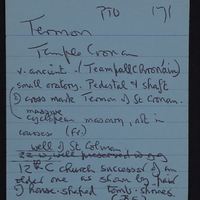 PTO 171
Termon
Temple Cronan
v. ancient. (Teampall Chronáin)
small oratory. Pedestal & shaft
② cross marks Termon of St Cronan.
massive
cyclopean masonry, not in
courses (Fr.)
well of St Colman
12th C church successor of an
older one as shown by pair
of house-shaped tomb-shrines